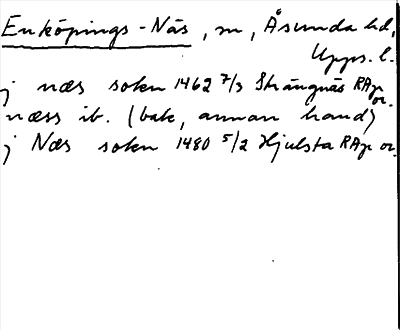 Enköpings-Näs, sn, Åsunda hd,
Upps. l.
j næs sokn 1462 7/3 Strängnäs RAp or.
næss ib. (bak, annan hand)
j Næs sokn 1480 5/2 Hjulsta RAp or.